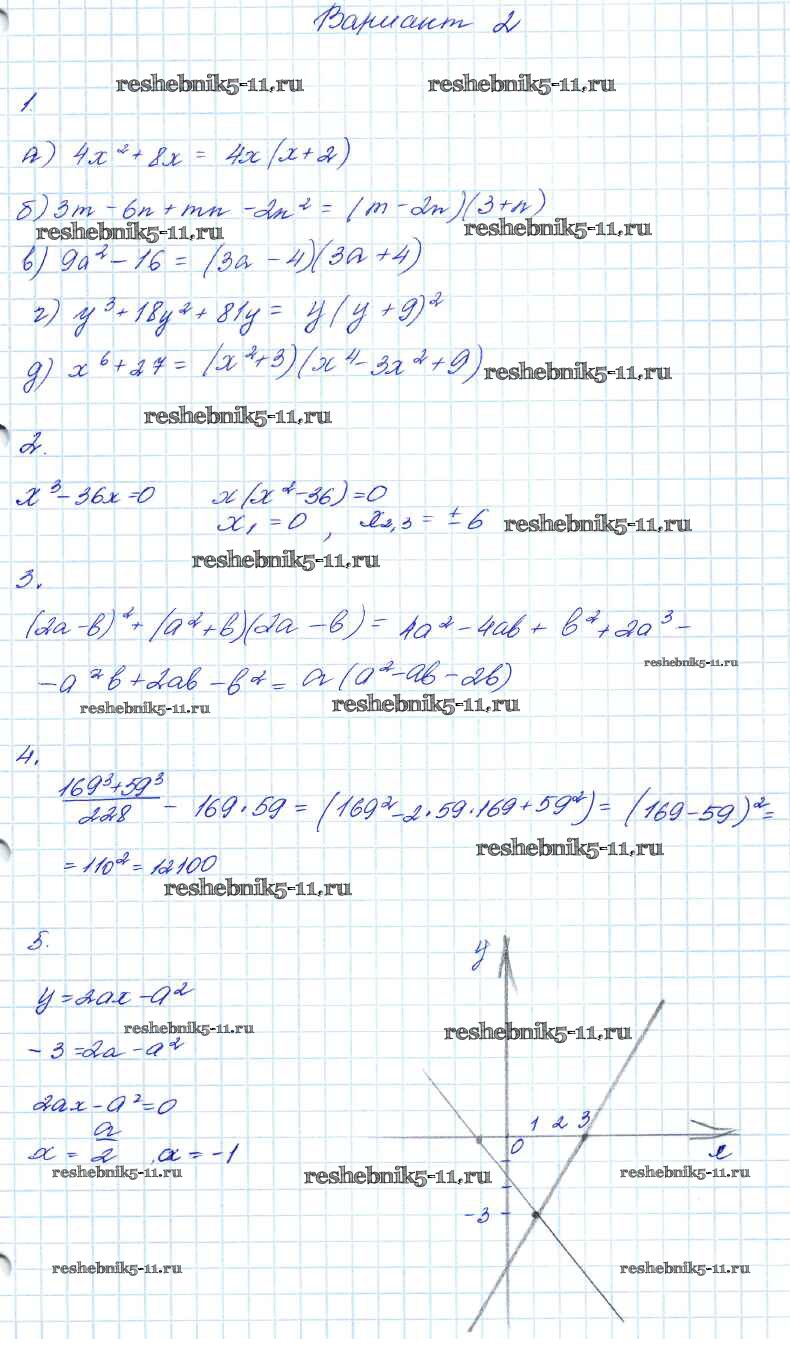 Вариант 2
reshebnik5-11.ru reshebnik5-11.ru
1.
а) 4x² + 8x = 4x(x+2)
б) 3m - 6n + mn - 2n² = (m - 2n)(3+n)
reshebnik5-11.ru reshebnik5-11.ru
в) 9a² - 16 = (3a - 4)(3a + 4)
г) y³ + 18y² + 81y = y(y + 9)²
д) x⁶ + 27 = (x² + 3)(x⁴ - 3x² + 9) reshebnik5-11.ru
reshebnik5-11.ru
2.
x³ - 36x = 0 x(x² - 36) = 0
x₁ = 0, x₂,₃ = ± 6 reshebnik5-11.ru
reshebnik5-11.ru
3.
(2a - b)² + (a² + b)(2a - b) = 4a² - 4ab + b² + 2a³ -
reshebnik5-11.ru
- a²b + 2ab - b² = a(a² - ab - 2b)
reshebnik5-11.ru reshebnik5-11.ru
4.
169³ + 59³
228
- 169 · 59 = (169² - 2 · 59 · 169 + 59²) = (169 - 59)² =
reshebnik5-11.ru
= 110² = 12100
reshebnik5-11.ru
5.
y
y = 2ax - a²
reshebnik5-11.ru reshebnik5-11.ru
- 3 = 2a - a²
2ax - a² = 0
1 2 3
x = a/2, a = -1
0 x
reshebnik5-11.ru reshebnik5-11.ru reshebnik5-11.ru
-3
reshebnik5-11.ru reshebnik5-11.ru